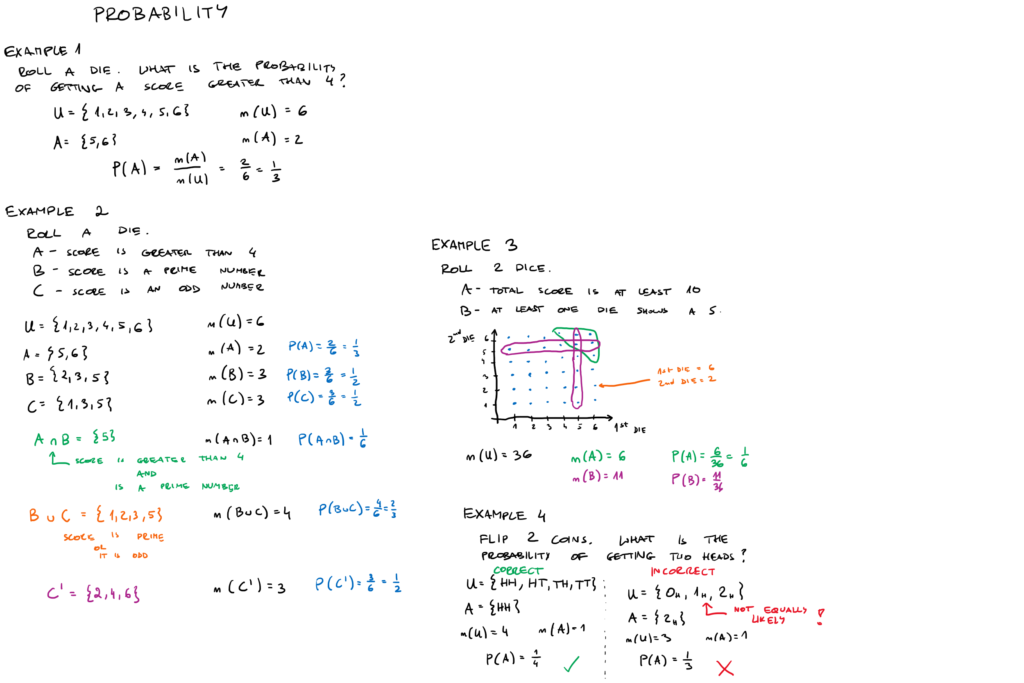 PROBABILITY
EXAMPLE 1
ROLL A DIE. WHAT IS THE PROBABILITY
OF GETTING A SCORE GREATER THAN 4?
U = {1,2,3,4,5,6} n(U) = 6
A = {5,6} n(A) = 2
P(A) = n(A)/n(U) = 2/6 = 1/3
EXAMPLE 2
ROLL A DIE.
A - SCORE IS GREATER THAN 4
B - SCORE IS A PRIME NUMBER
C - SCORE IS AN ODD NUMBER
U = {1,2,3,4,5,6} n(U) = 6
A = {5,6} n(A) = 2 P(A) = 2/6 = 1/3
B = {2,3,5} n(B) = 3 P(B) = 3/6 = 1/2
C = {1,3,5} n(C) = 3 P(C) = 3/6 = 1/2
A ∩ B = {5} n(A∩B) = 1 P(A∩B) = 1/6
SCORE IS GREATER THAN 4
AND
IS A PRIME NUMBER
B ∪ C = {1,2,3,5} n(B∪C) = 4 P(B∪C) = 4/6 = 2/3
SCORE IS PRIME
OR
IT IS ODD
C' = {2,4,6} n(C') = 3 P(C') = 3/6 = 1/2
EXAMPLE 3
ROLL 2 DICE.
A - TOTAL SCORE IS AT LEAST 10
B - AT LEAST ONE DIE SHOWS A 5.
2nd DIE
6
5
4
3
2
1
1 2 3 4 5 6 1st DIE
1st DIE = 6
2nd DIE = 2
n(U) = 36 n(A) = 6 P(A) = 6/36 = 1/6
n(B) = 11 P(B) = 11/36
EXAMPLE 4
FLIP 2 COINS. WHAT IS THE
PROBABILITY OF GETTING TWO HEADS?
CORRECT
U = {HH, HT, TH, TT}
A = {HH}
n(U) = 4 n(A) = 1
P(A) = 1/4 ✓
INCORRECT
U = {0H, 1H, 2H}
NOT EQUALLY
LIKELY !
A = {2H}
n(U) = 3 n(A) = 1
P(A) = 1/3 ✗